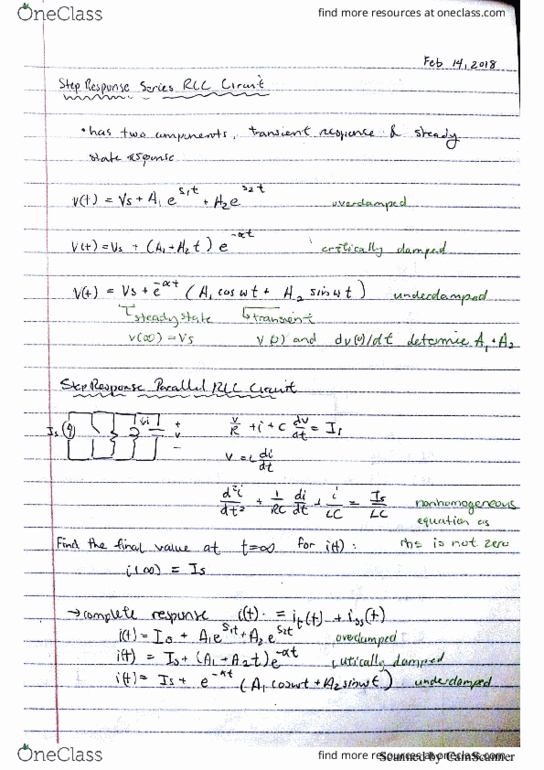 OneClass
find more resources at oneclass.com
Feb 14, 2018
Step Response Series RLC Circuit
• has two components, transient response & steady
state response
v(t) = Vs + A₁ e^s₁t + A₂e^s₂t overdamped
v(t) = Vs + (A₁+A₂t) e^-αt critically damped
v(t) = Vs + e^-αt (A₁ cos ωt + A₂ sin ωt) underdamped
steady state transient
v(∞) = Vs v(0) and dv(0)/dt determine A₁ + A₂
Step Response Parallel RLC Circuit
Is i + v -
v/R + i + c dv/dt = Is
v = L di/dt
d²i/dt² + 1/RC di/dt + i/LC = Is/LC nonhomogeneous
equation as
Find the final value at t=∞ for i(t): rhs is not zero
i(∞) = Is
→ complete response i(t) = it(t) + iss(t)
i(t) = Is + A₁e^s₁t + A₂e^s₂t overdamped
i(t) = Is + (A₁ + A₂t)e^-αt critically damped
i(t) = Is + e^-αt (A₁ cosωt + A₂ sinωt) underdamped
OneClass
find more resources at oneclass.com
Scanned by CamScanner